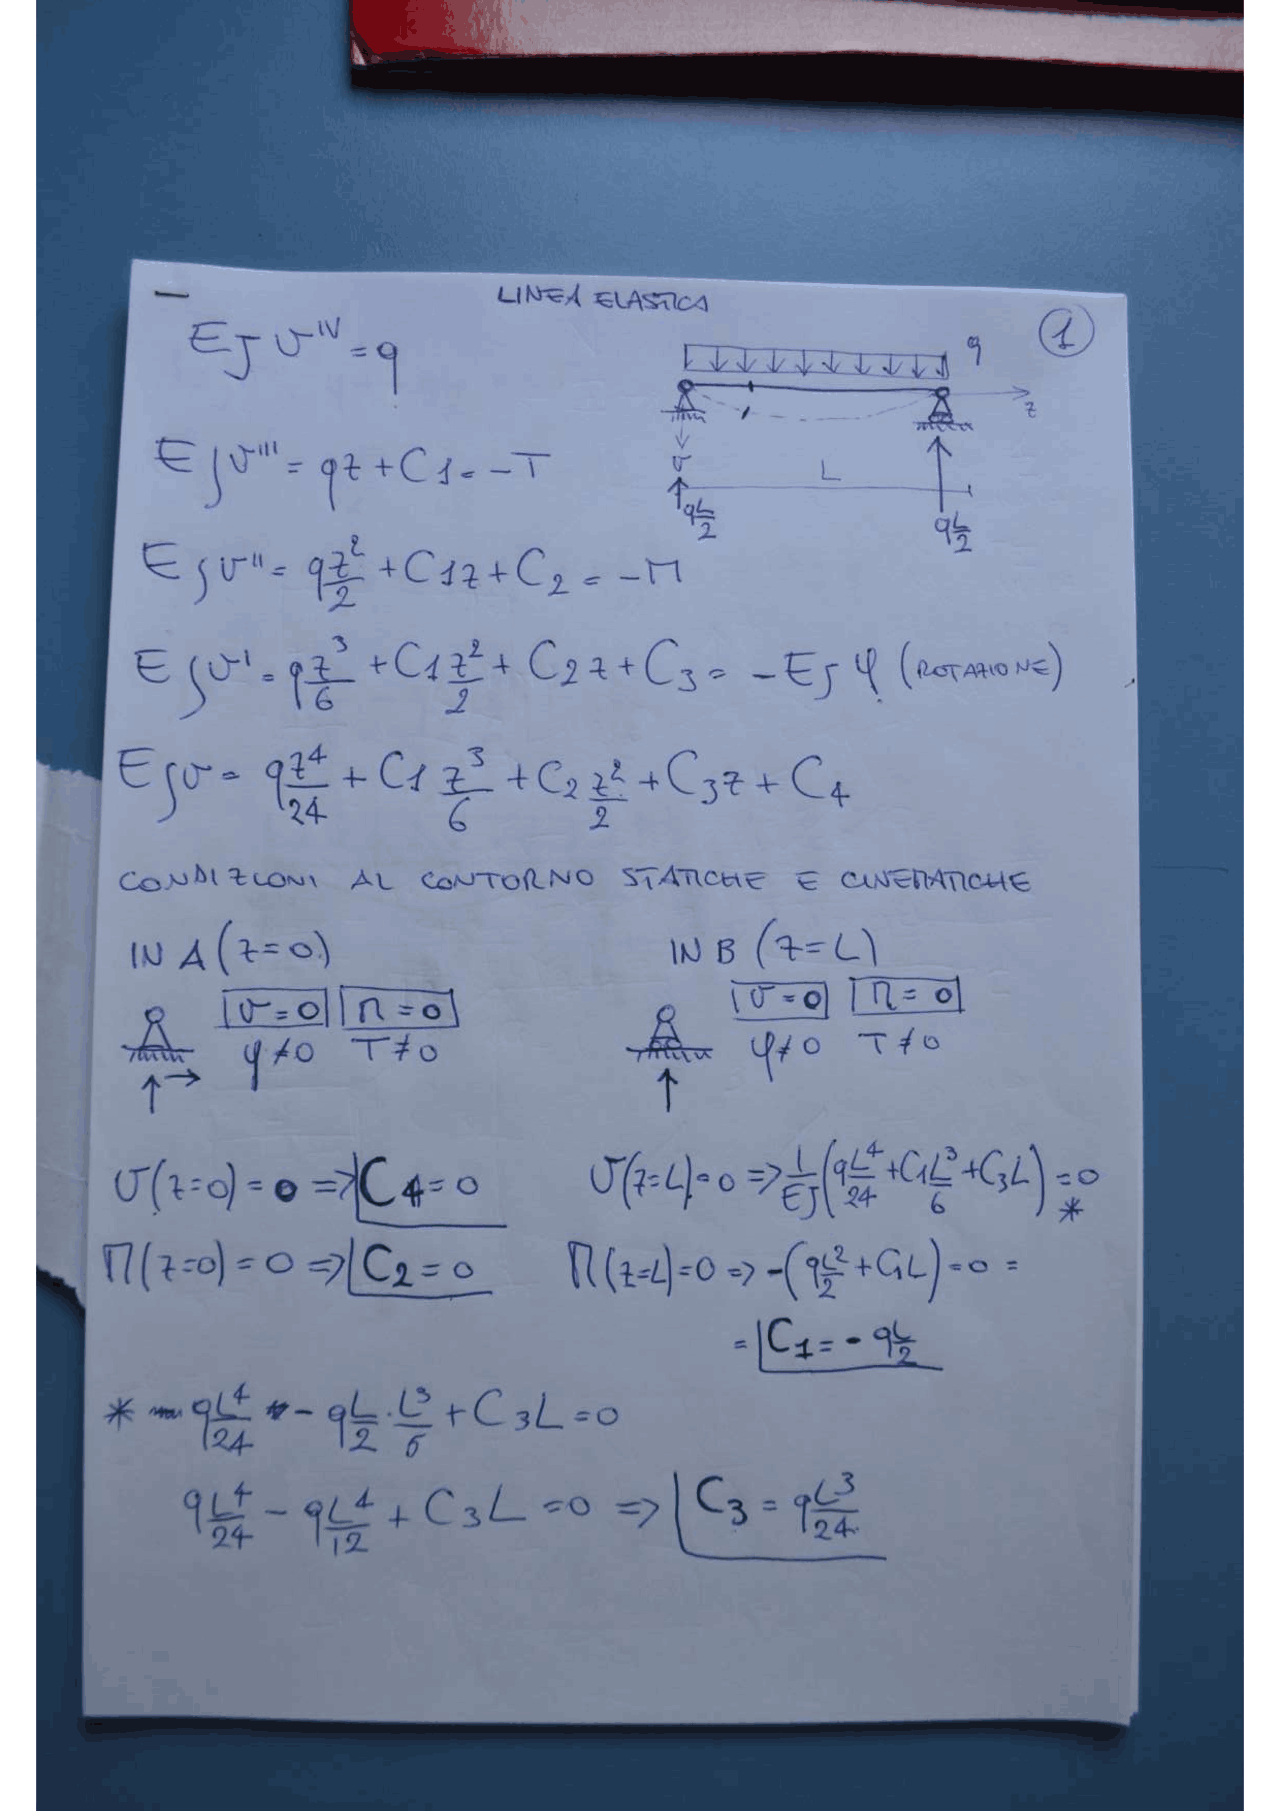 LINEA ELASTICA
①
EJ v^IV = q
q
z
EJ v''' = qz + C1 = -T
v
L
qL/2
qL/2
EJ v'' = q z²/2 + C1z + C2 = -M
EJ v' = q z³/6 + C1 z²/2 + C2 z + C3 = -EJ φ (ROTAZIONE)
EJ v = q z⁴/24 + C1 z³/6 + C2 z²/2 + C3 z + C4
CONDIZIONI AL CONTORNO STATICHE E CINEMATICHE
IN A (z=0)
IN B (z=L)
v=0 M=0
v=0 M=0
φ≠0 T≠0
φ≠0 T≠0
v(z=0)=0 => C4=0
v(z=L)=0 => 1/EJ (qL⁴/24 + C1 L³/6 + C3L) = 0 *
M(z=0)=0 => C2=0
M(z=L)=0 => -(qL²/2 + C1L) = 0 =
= C1 = - qL/2
* qL⁴/24 - qL/2 · L³/6 + C3L = 0
qL⁴/24 - qL⁴/12 + C3L = 0 => C3 = qL³/24